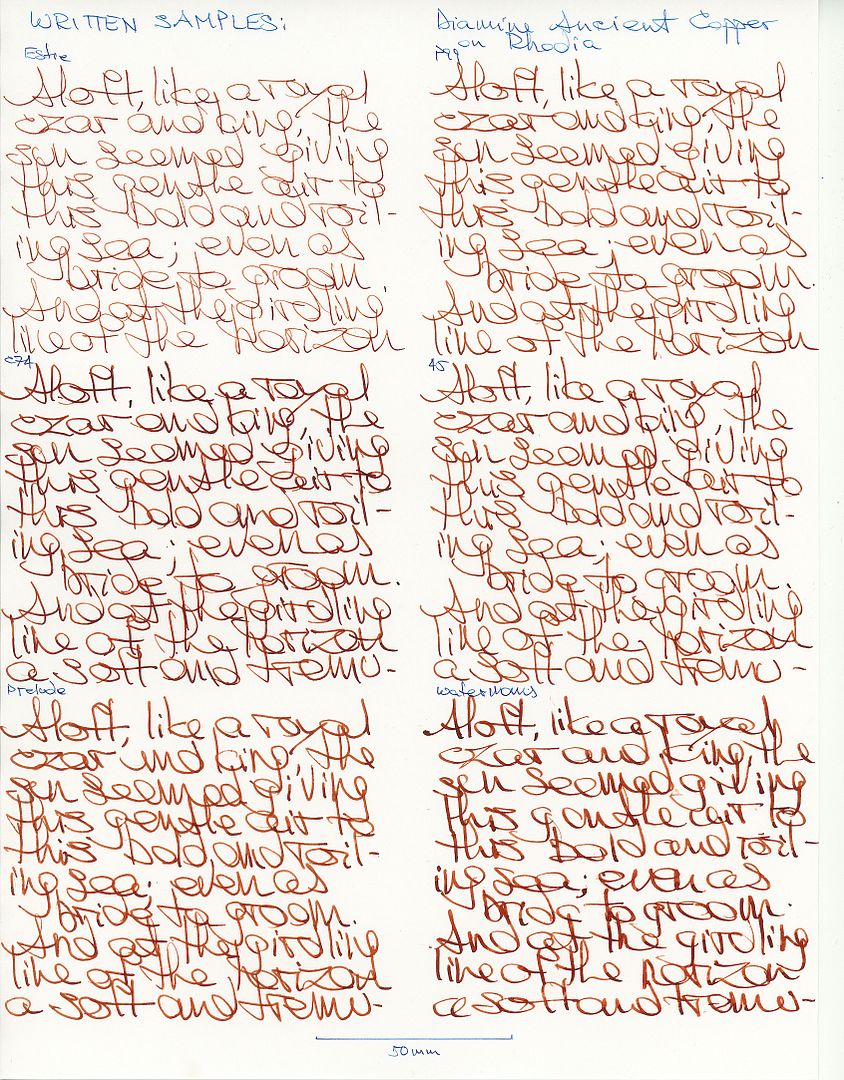 WRITTEN SAMPLES:
Diamine Ancient Copper
on Rhodia
Estie
Aloft, like a royal
czar and king, the
sun seemed giving
this gentle air to
this bold and roil-
ing sea; even as
bride to groom.
And at the girdling
line of the horizon
P99
Aloft, like a royal
czar and king, the
sun seemed giving
this gentle air to
this bold and roil-
ing sea; even as
bride to groom.
And at the girdling
line of the horizon
C74
Aloft, like a royal
czar and king, the
sun seemed giving
this gentle air to
this bold and roil-
ing sea; even as
bride to groom.
And at the girdling
line of the horizon
a soft and tremu-
45
Aloft, like a royal
czar and king, the
sun seemed giving
this gentle air to
this bold and roil-
ing sea; even as
bride to groom.
And at the girdling
line of the horizon
a soft and tremu-
prelude
Aloft, like a royal
czar and king, the
sun seemed giving
this gentle air to
this bold and roil-
ing sea; even as
bride to groom.
And at the girdling
line of the horizon
a soft and tremu-
watermans
Aloft, like a royal
czar and king, the
sun seemed giving
this gentle air to
this bold and roil-
ing sea; even as
bride to groom.
And at the girdling
line of the horizon
a soft and tremu-
50mm